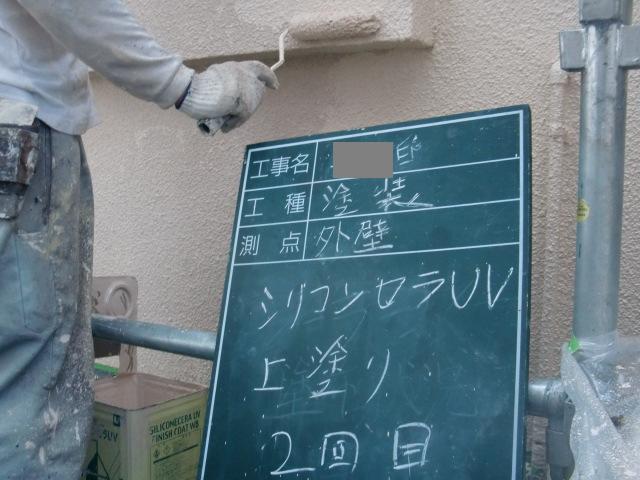 工事名 邸
工種 塗装
測点 外壁
シリコンセラUV
上塗り
2回目
SILICONECERA UV
FINISH COAT WB
ラUV